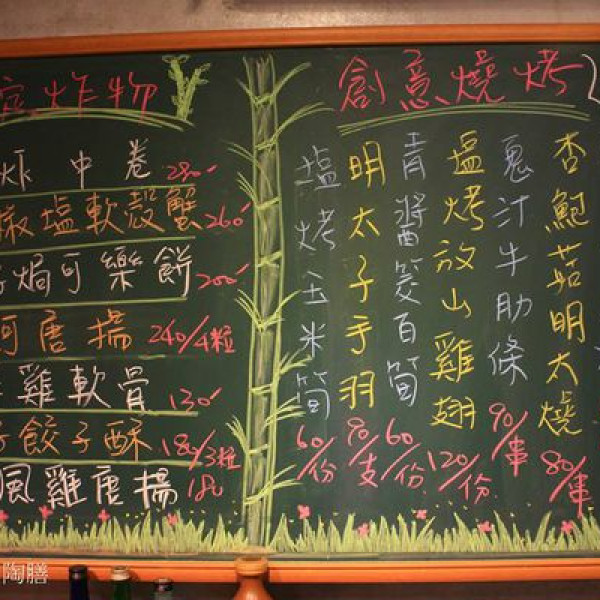 炸物
中卷 280
椒塩軟殼蟹 260
焗可樂餅 200
唐揚 240/4粒
雞軟骨 130
餃子酥 180/3粒
風雞唐揚 180
創意燒烤
杏鮑菇明太燒 80/串
牛肋條 90/串
塩烤放山雞翅 120/份
青醬筊白筍 60/份
明太子手羽 90/支
塩烤玉米筍 60/份
陶膳